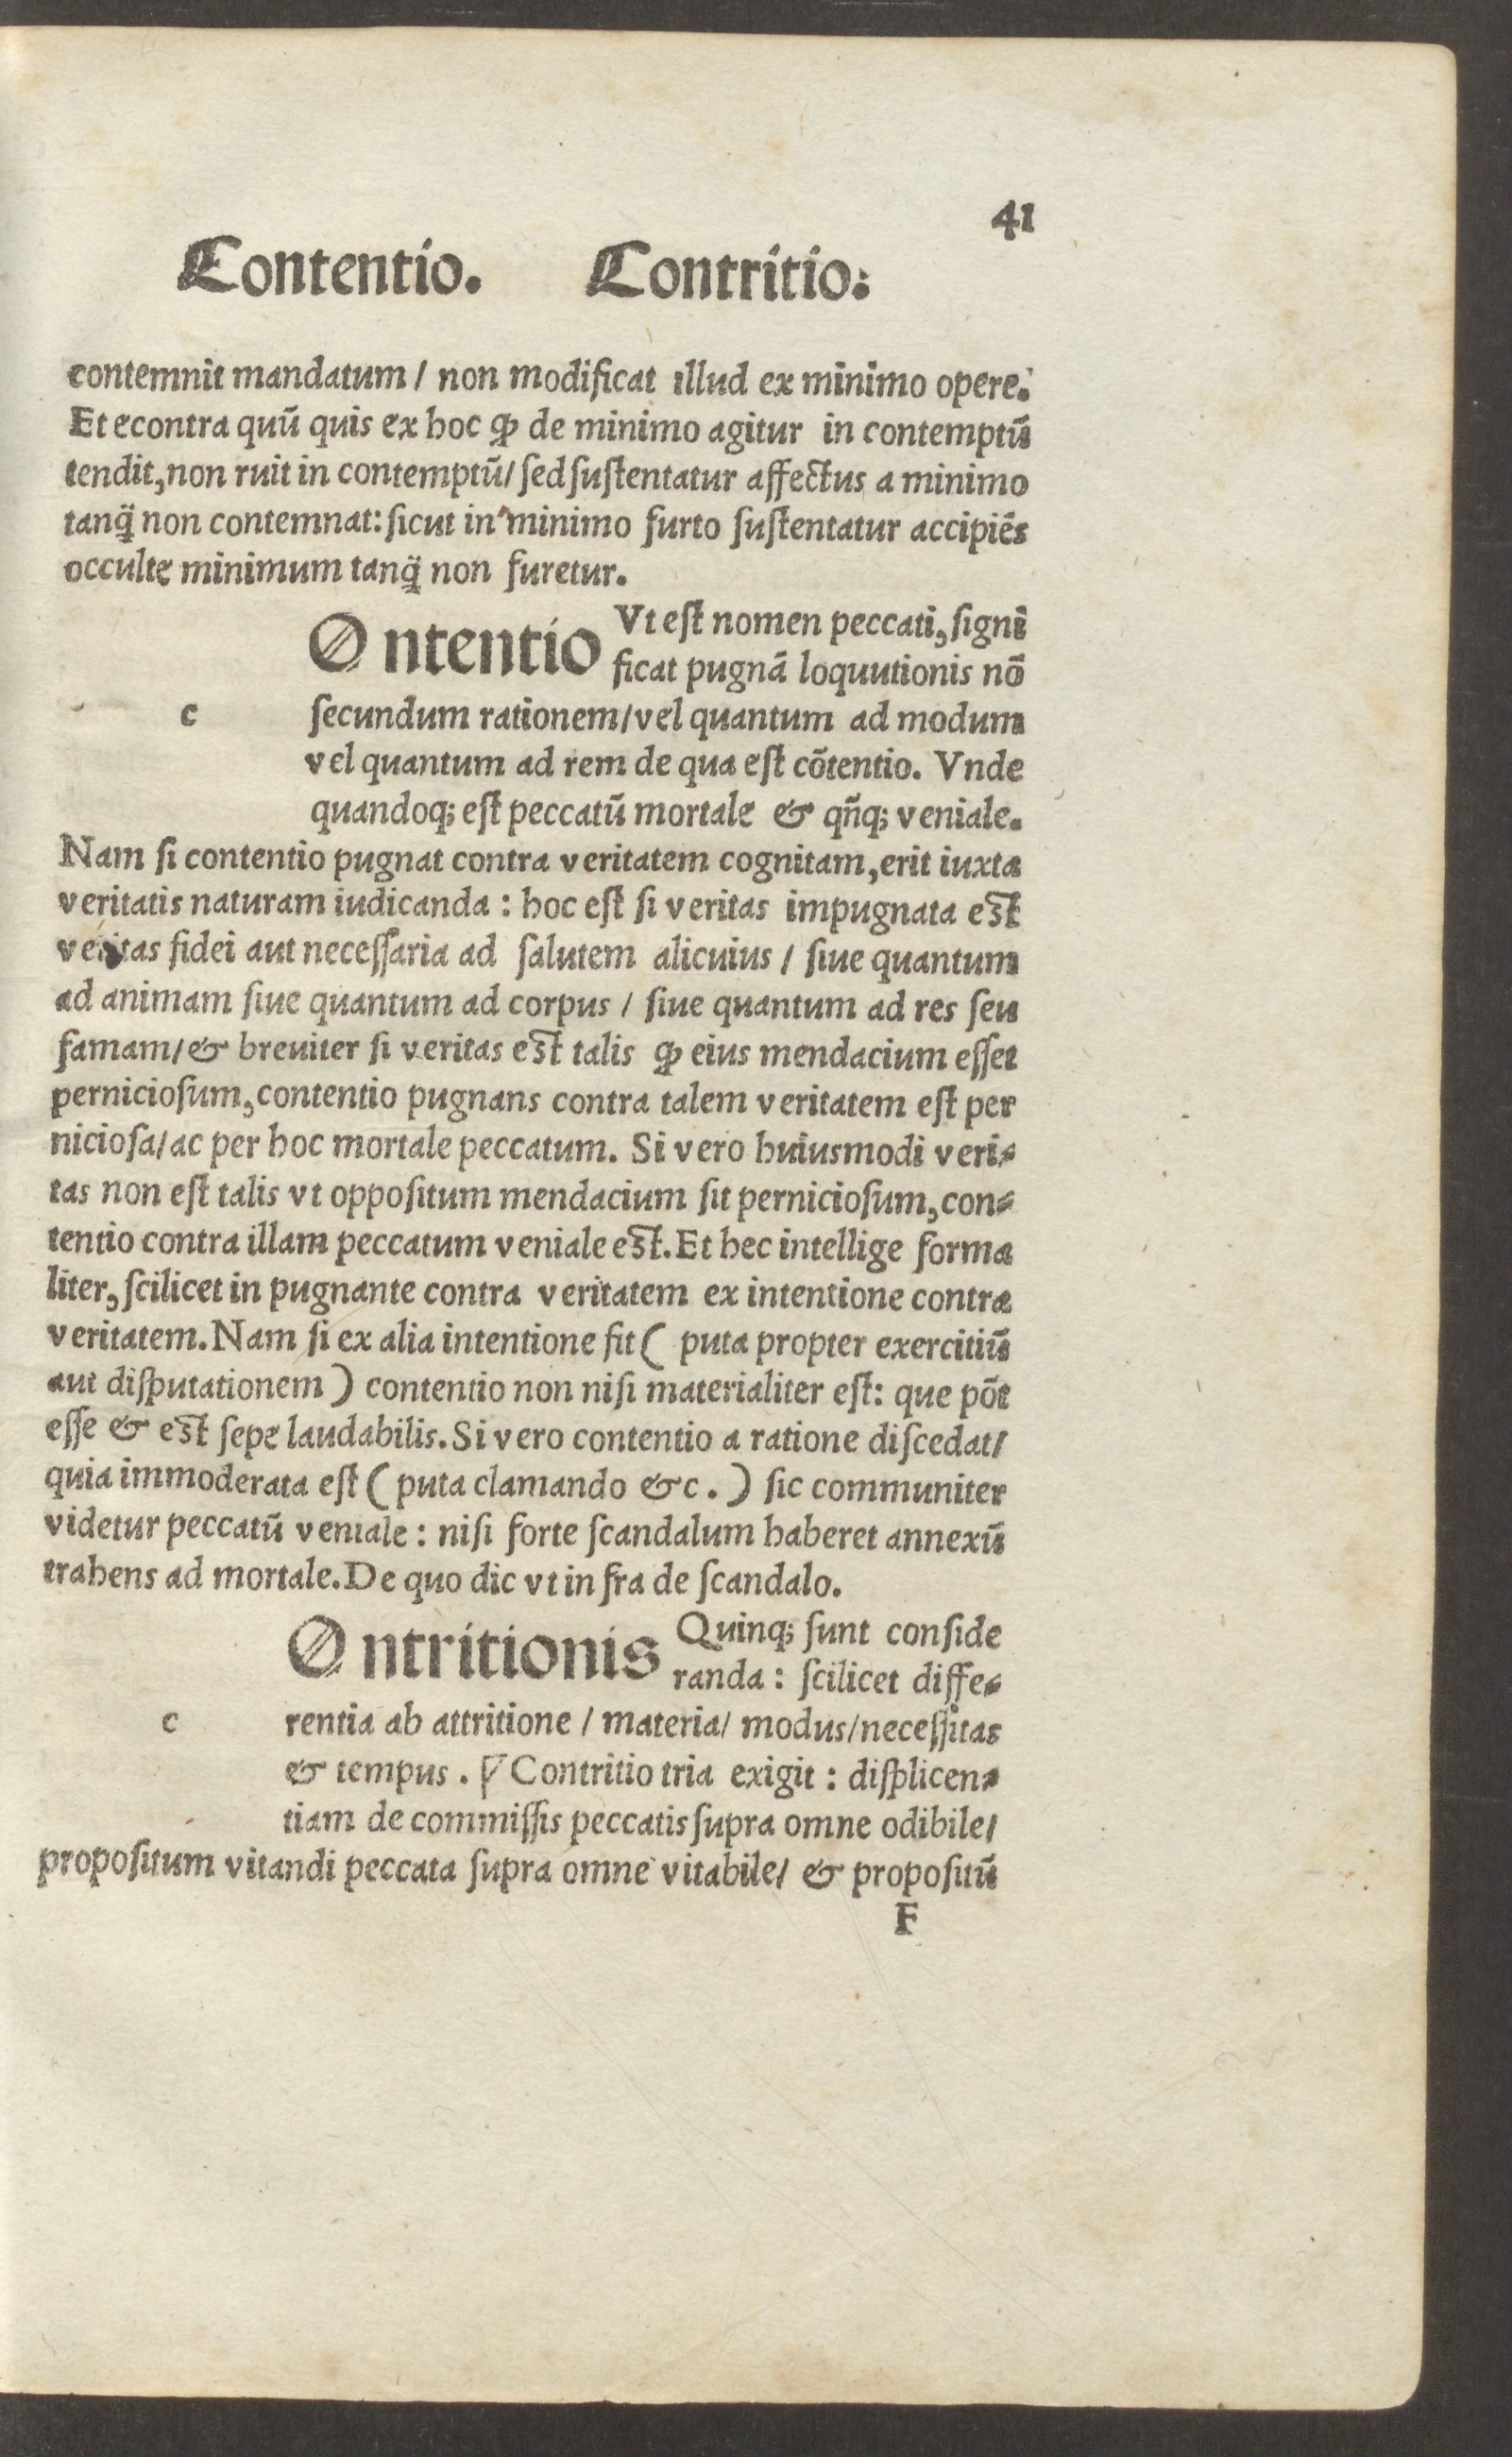 41
Contentio. Contritio:
contemnit mandatum / non modificat illud ex minimo opere.
Et econtra quū quis ex hoc ꝙ de minimo agitur in contemptū
tendit, non ruit in contemptū / sed sustentatur affectus a minimo
tanq̈ non contemnat: sicut in minimo furto sustentatur accipiēs
occulte minimum tanq̈ non furetur.
Ontentio Vt est nomen peccati, signi
ficat pugnā loquutionis nō
c secundum rationem / vel quantum ad modum
vel quantum ad rem de qua est cōtentio. Vnde
quandoq; est peccatū mortale & qn̄q; veniale.
Nam si contentio pugnat contra veritatem cognitam, erit iuxta
veritatis naturam iudicanda : hoc est si veritas impugnata est
veritas fidei aut necessaria ad salutem alicuius / siue quantum
ad animam siue quantum ad corpus / siue quantum ad res seu
famam / & breuiter si veritas est talis ꝙ eius mendacium esset
perniciosum, contentio pugnans contra talem veritatem est per
niciosa / ac per hoc mortale peccatum. Si vero huiusmodi veri-
tas non est talis vt oppositum mendacium sit perniciosum, con-
tentio contra illam peccatum veniale est. Et hec intellige forma
liter, scilicet in pugnante contra veritatem ex intentione contra
veritatem. Nam si ex alia intentione fit ( puta propter exercitiū
aut disputationem ) contentio non nisi materialiter est: que pōt
esse & est sepe laudabilis. Si vero contentio a ratione discedat /
quia immoderata est ( puta clamando &c . ) sic communiter
videtur peccatū veniale : nisi forte scandalum haberet annexū
trahens ad mortale. De quo dic vt in fra de scandalo.
Ontritionis Quinq; sunt conside
randa : scilicet diffe-
c rentia ab attritione / materia / modus / necessitas
& tempus . ℣ Contritio tria exigit : displicen-
tiam de commissis peccatis supra omne odibile /
propositum vitandi peccata supra omne vitabile / & propositū
F